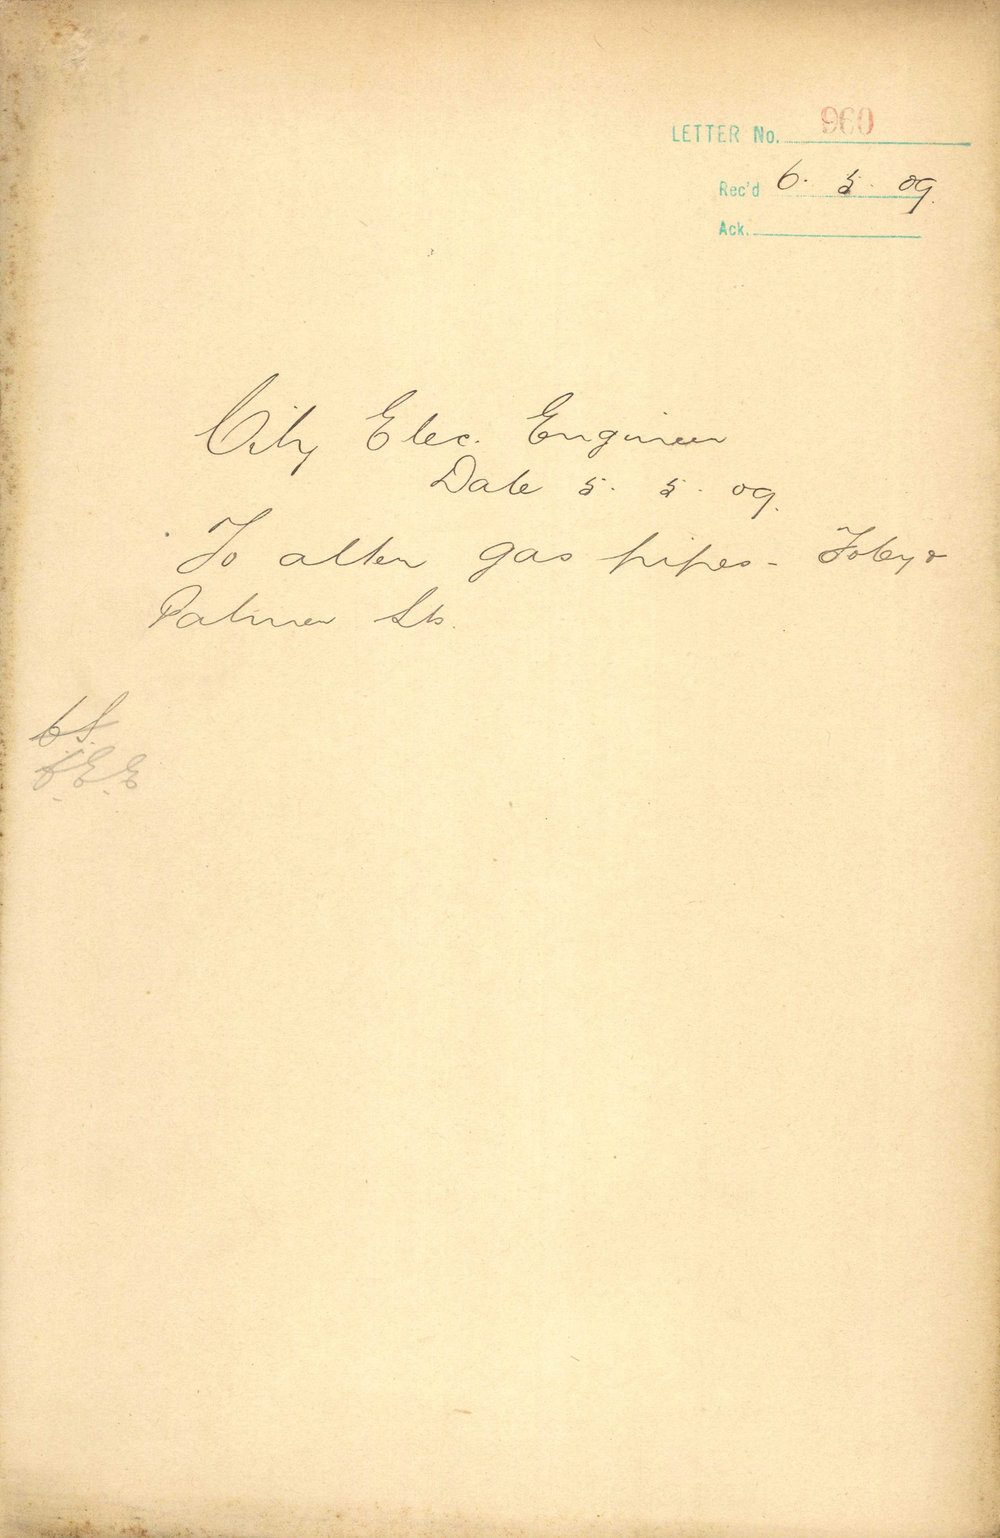 LETTER No. 960
Rec'd 6. 5. 09.
Ack.
City Elec. Engineer
Date 5. 5. 09.
To alter gas pipes - Foley &
Palmer Sts.
C.S.
C.E.E